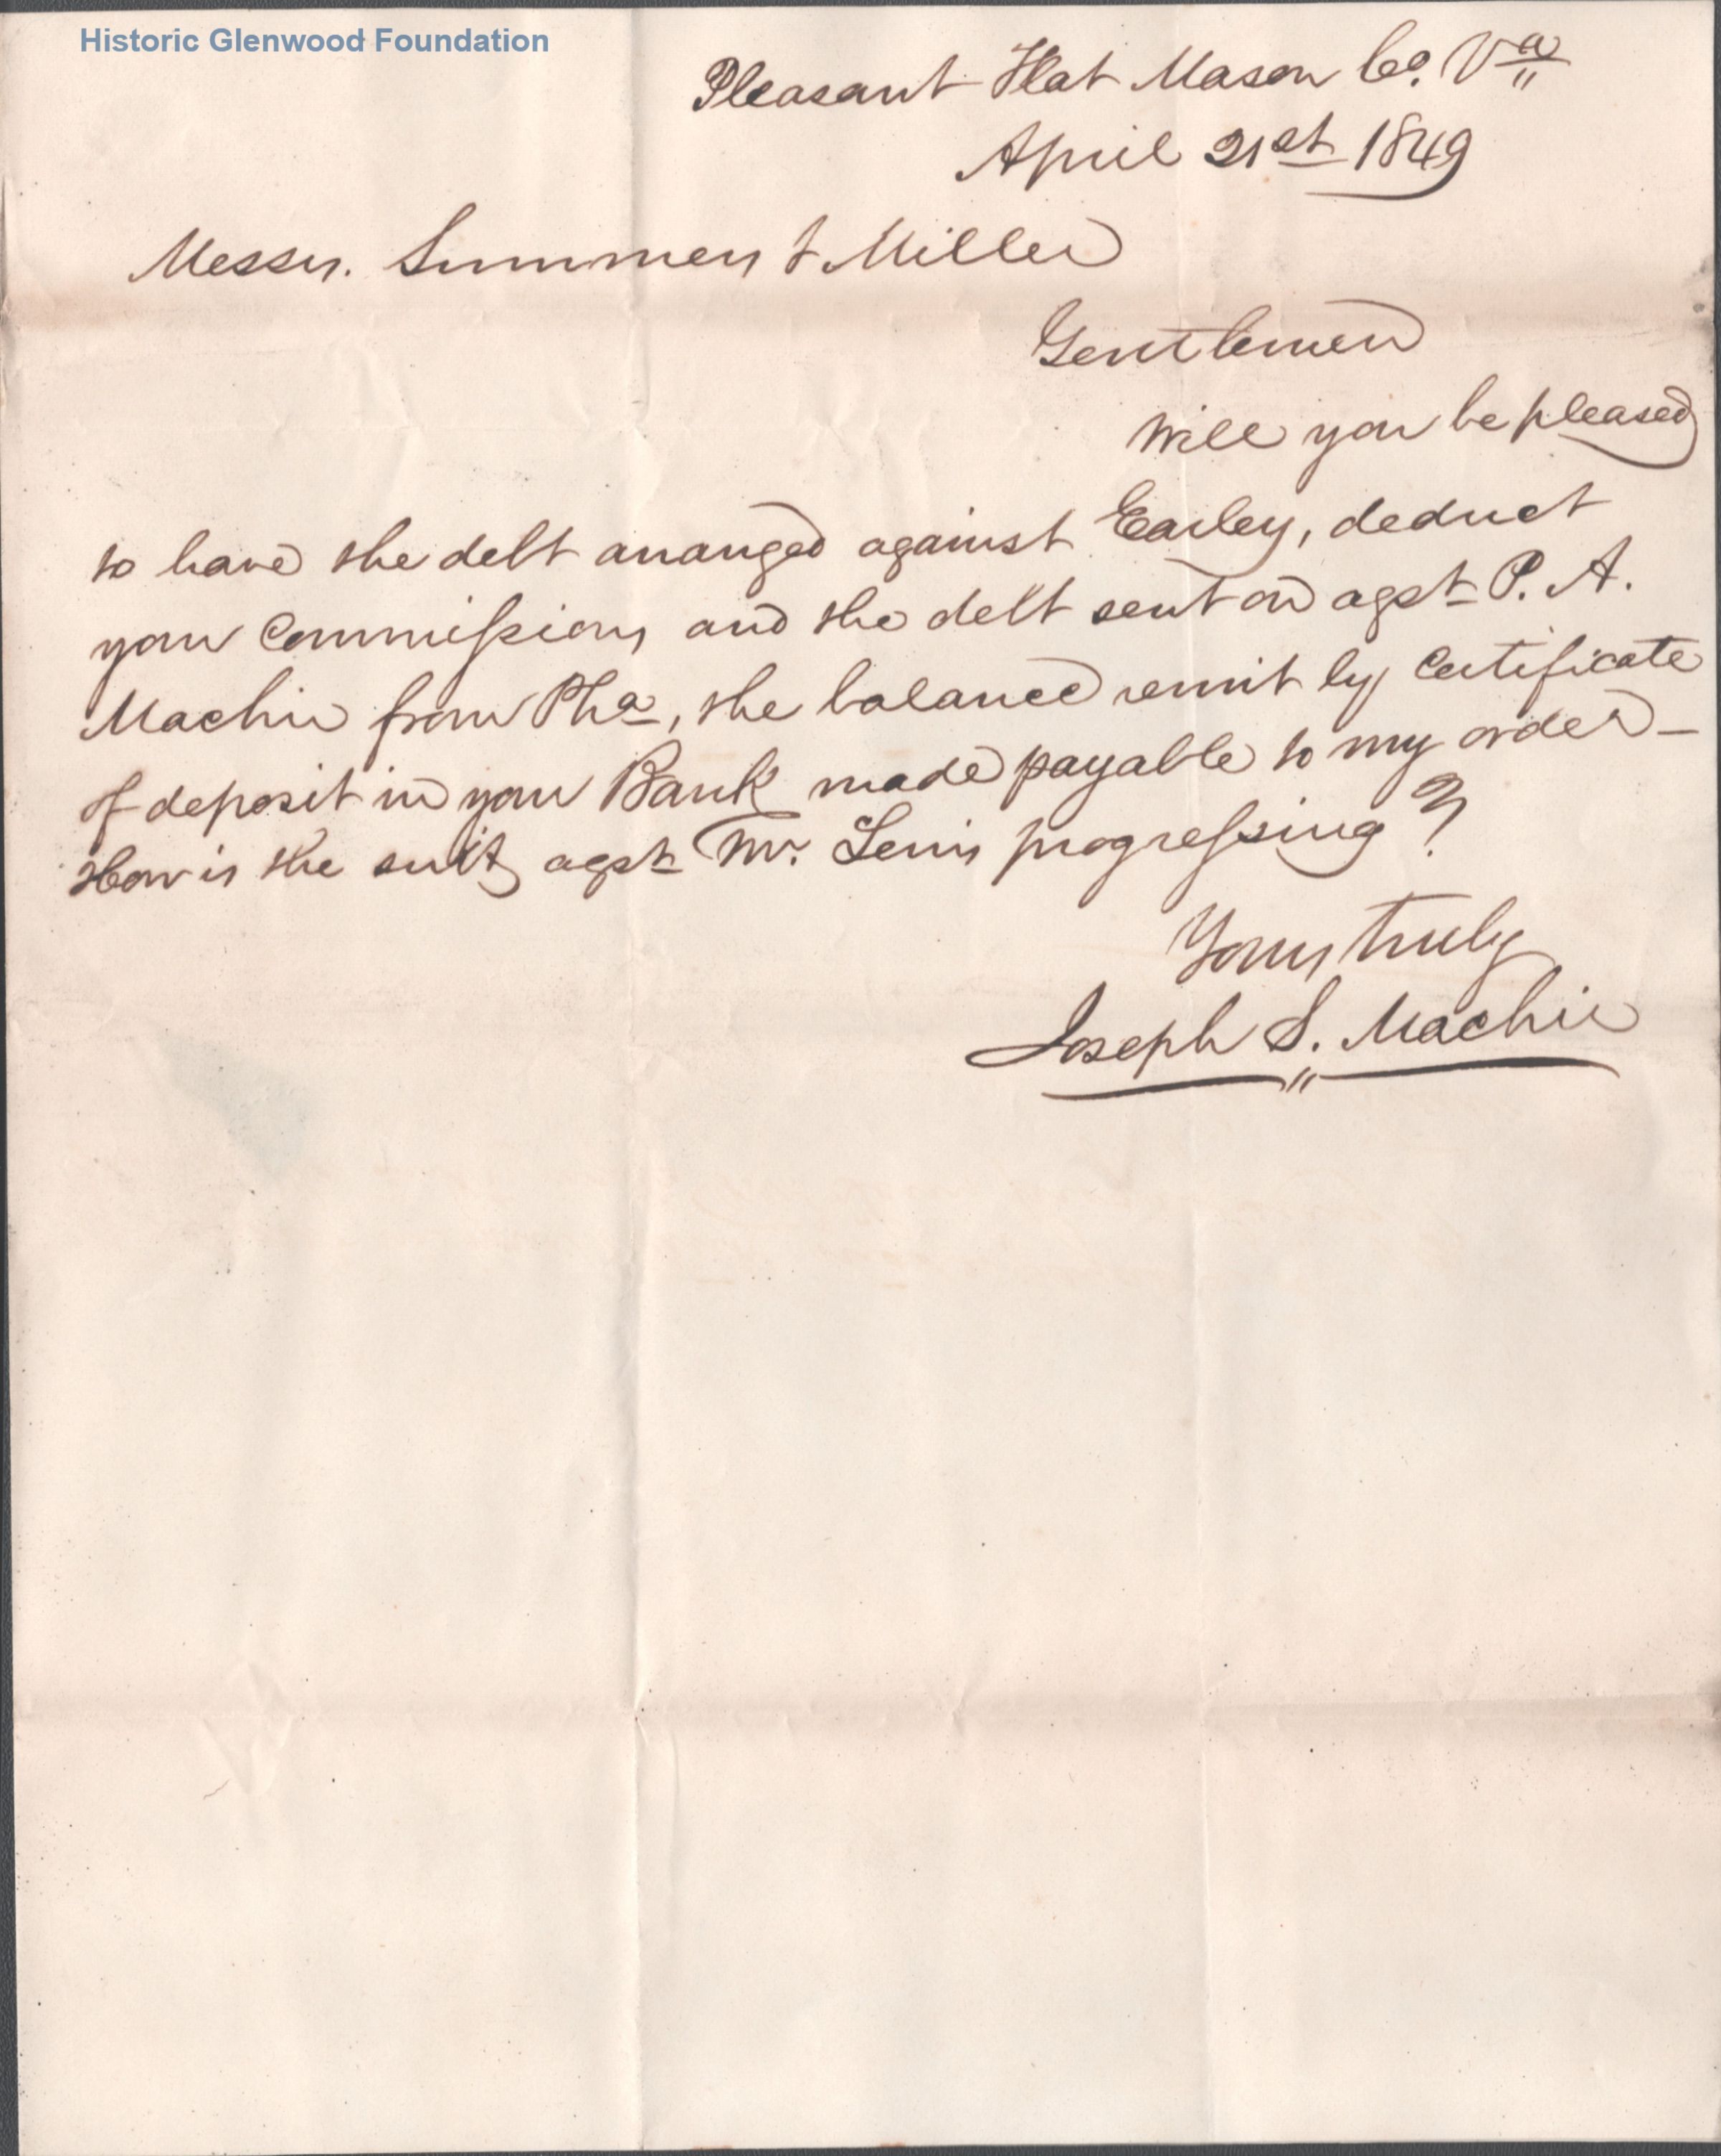 Historic Glenwood Foundation
Pleasant Flat Mason Co. Va
April 21st 1849
Messrs. Summers & Miller
Gentlemen
Will you be pleased
to have the debt arranged against Earley, deduct
your Commissions and the debt sent on agst P. A.
Machir from Pha, the balance remit by Certificate
of deposit in your Bank made payable to my order –
How is the suit agst Mr. Lewis progressing?
Yours truly
Joseph S. Machir